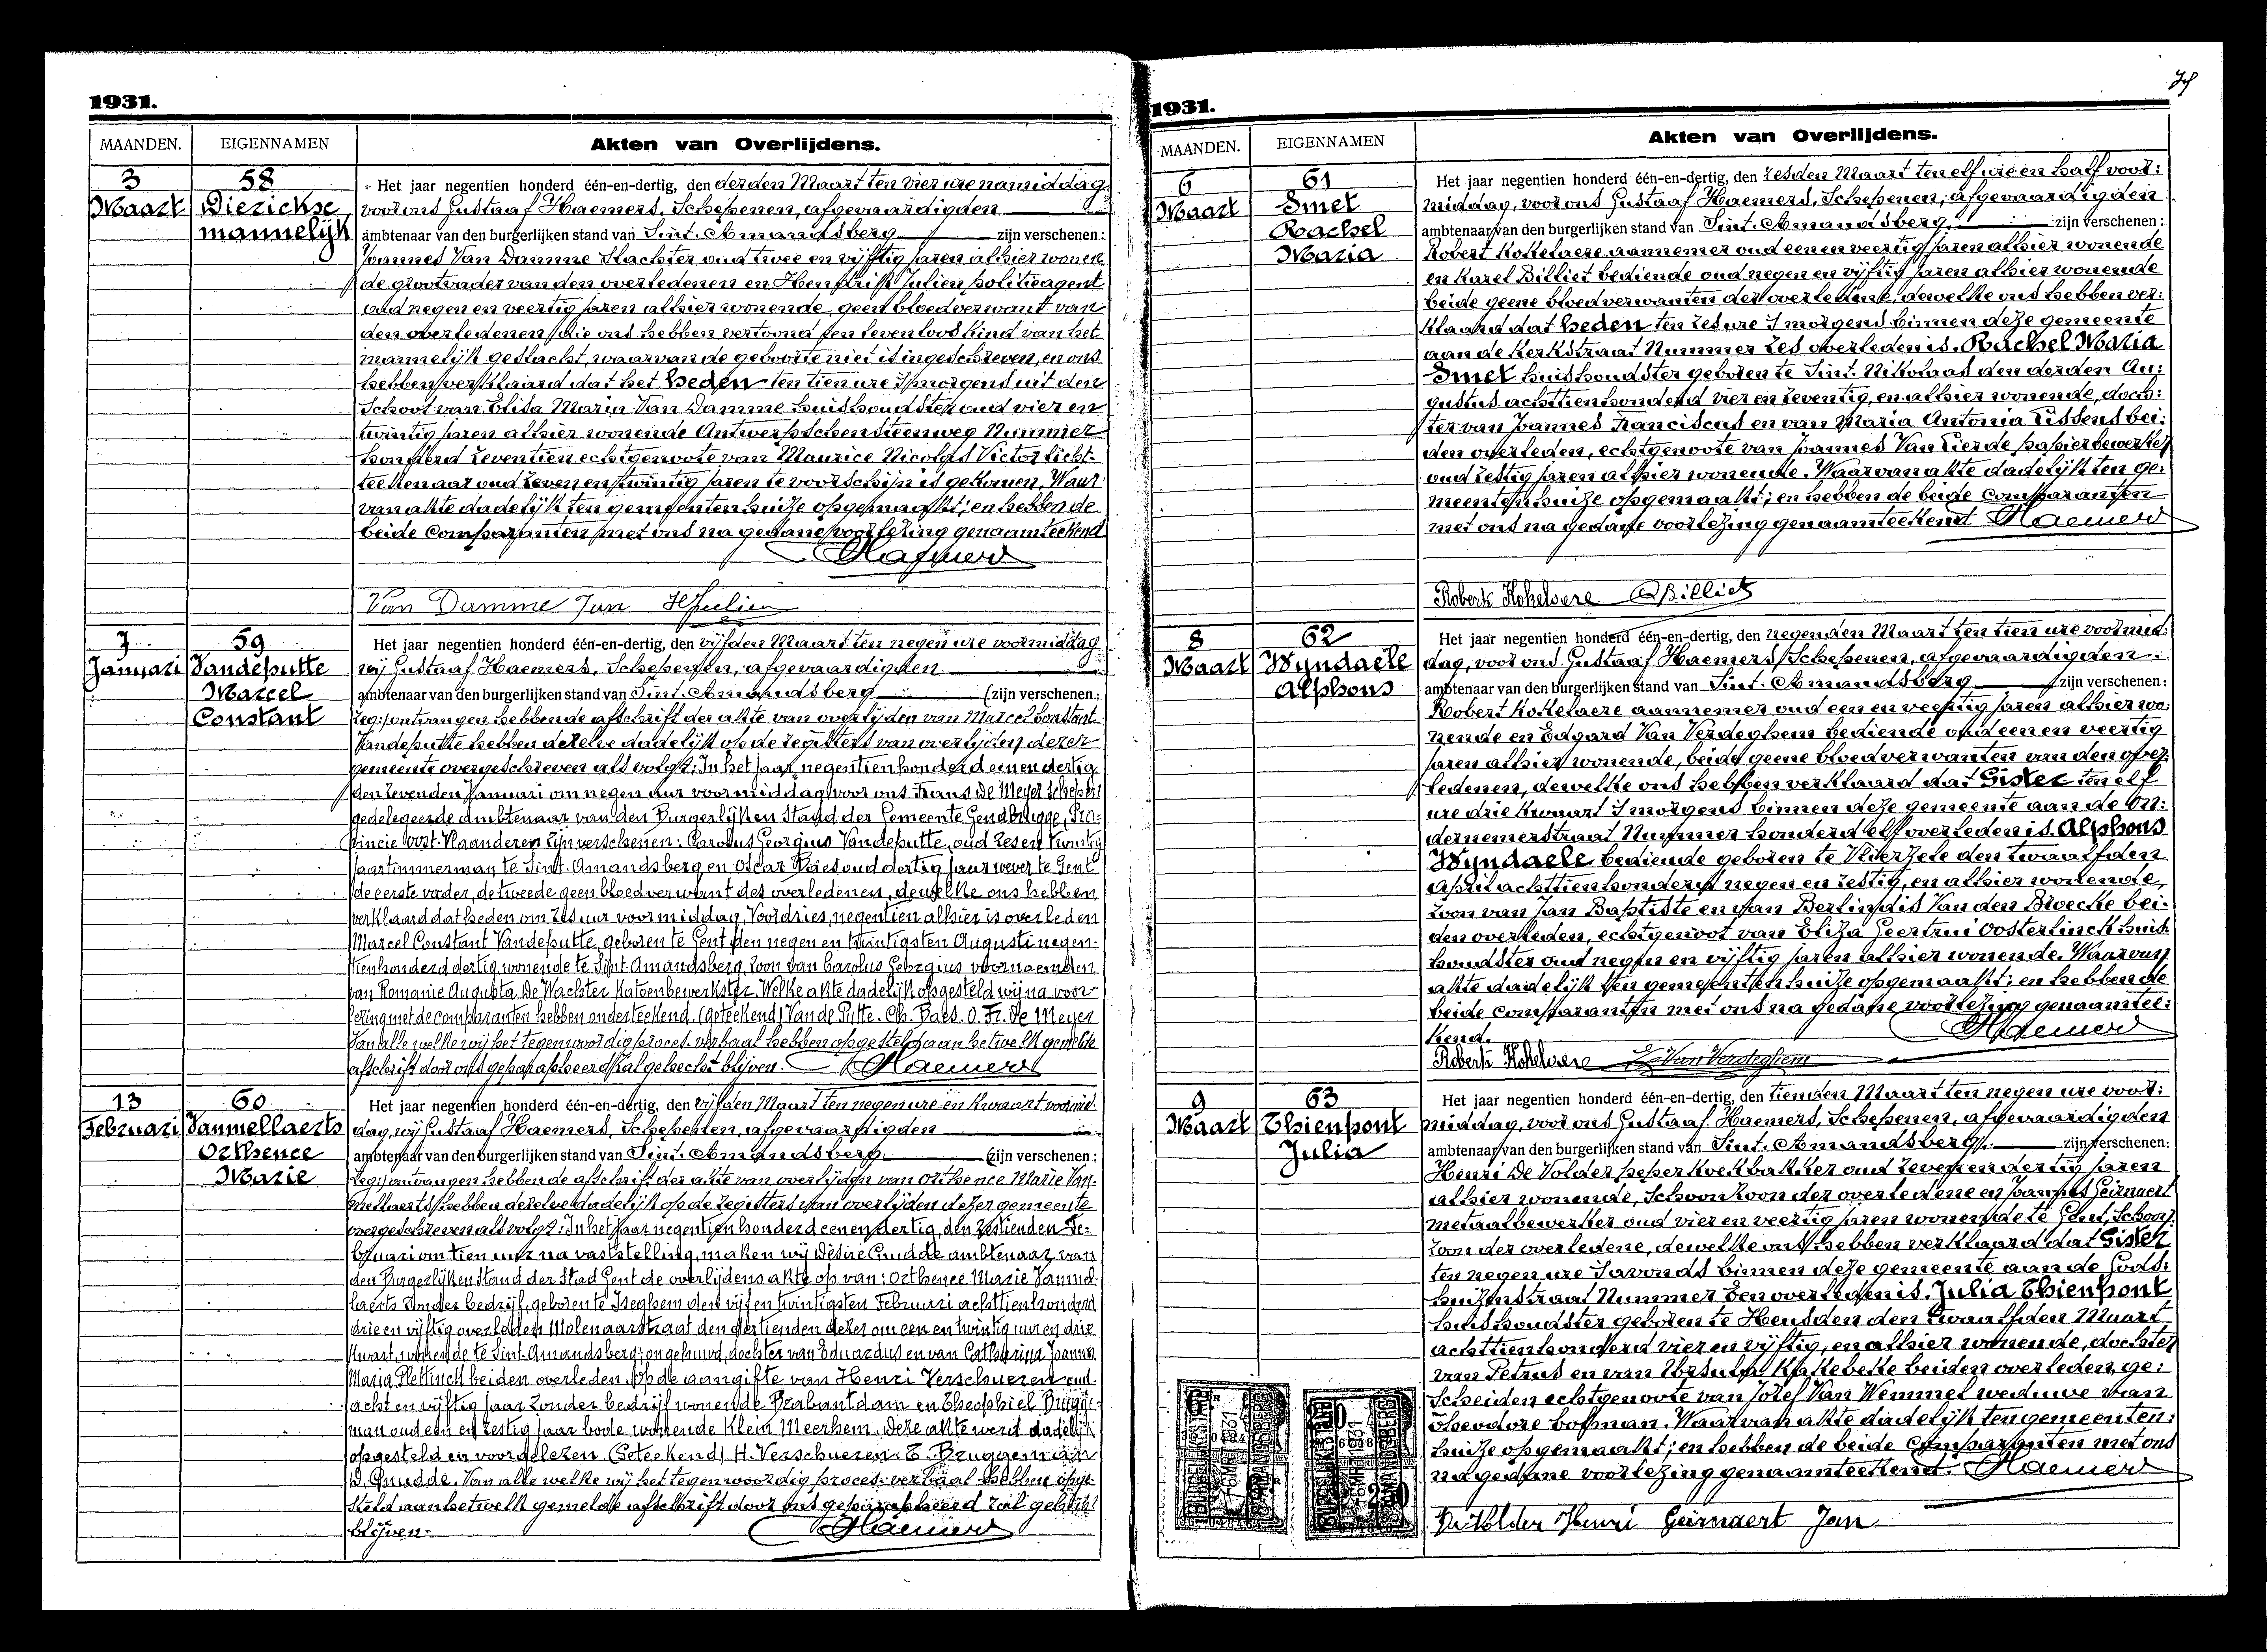 1931.
MAANDEN. EIGENNAMEN Akten van Overlijdens.
3 Maart
58
Dierickse
mannelijk
Het jaar negentien honderd één-en-dertig, den derden Maart ten vier ure namiddag
voor ons Gustaaf Haemers, Schepenen, afgevaardigden
ambtenaar van den burgerlijken stand van Sint-Amandsberg zijn verschenen:
Joannes Van Damme slachter oud twee en vijftig jaren alhier wonen
de grootvader van den overledenen en Hendrik Julien politieagent
oud negen en veertig jaren alhier wonende, geen bloedverwant van
den overledenen, die ons hebben vertoond een levenloos kind van het
mannelijk geslacht, waarvan de geboorte niet is ingeschreven, en ons
hebben verklaard dat het heden ten tien ure 's morgens uit den
schoot van Elisa Maria Van Damme huishoudster oud vier en
twintig jaren alhier wonende Antwerpschensteenweg Nummer
honderd zeventien echtgenoote van Maurice Nicolas Victor
teekenaar oud zeven en twintig jaren te voorschijn is gekomen. Waar
van akte dadelijk ten gemeentenhuize opgemaakt; en hebben de
beide comparanten met ons na gedane voorlezing genaamteekend
Haemers
Van Damme Jan HJulien
7 Januari
59
Vandeputte
Marcel
Constant
Het jaar negentien honderd één-en-dertig, den vijfden Maart ten negen ure voormiddag
wij Gustaaf Haemers, Schepenen, afgevaardigden
ambtenaar van den burgerlijken stand van Sint-Amandsberg (zijn verschenen:
zeg:) ontvangen hebbende afschrift der akte van overlijden van Marcel Constant
Vandeputte hebben dezelve dadelijk op de registers van overlijden dezer
gemeente overgeschreven als volgt: In het jaar negentienhonderd eenendertig
den zevenden Januari om negen uur voormiddag voor ons Frans De Meyer schepen
gedelegeerde ambtenaar van den Burgerlijken Stand der Gemeente Gendbrugge, Pro-
vincie Oost-Vlaanderen zijn verschenen: Carolus Georgius Vandeputte, oud zes en twintig
jaar timmerman te Sint-Amandsberg en Oscar Baes oud dertig jaar wever te Gent
de eerste vader, de tweede geen bloedverwant des overledenen, dewelke ons hebben
verklaard dat heden om zes uur voormiddag, Voordries, negentien alhier is overleden
Marcel Constant Vandeputte, geboren te Gent den negen en twintigsten Augusti negen-
tienhonderd dertig, wonende te Sint-Amandsberg, zoon van Carolus Georgius voornoemden
van Romanie Augusta De Wachter katoenbewerkster. Welke akte dadelijk opgesteld wij na voor-
lezing met de comparanten hebben onderteekend. (Geteekend) Van de Putte. Ch. Baes. O. Fr. De Meyer
Van alle welke wij het tegenwoordig proces-verbaal hebben opgesteld aan hetwelk gemelde
afschrift door ons geparapheerd zal gehecht blijven. Haemers
13 Februari
60
Vanmellaerts
Orthence
Marie
Het jaar negentien honderd één-en-dertig, den vijfden Maart ten negen ure een kwaart voormid-
dag, wij Gustaaf Haemers, Schepenen, afgevaardigden
ambtenaar van den burgerlijken stand van Sint-Amandsberg (zijn verschenen:
zeg:) ontvangen hebbende afschrift der akte van overlijden van Orthence Marie Van-
mellaerts hebben dezelve dadelijk op de registers van overlijden dezer gemeente
overgeschreven als volgt: In het jaar negentien honderd eenendertig, den zestienden Fe-
bruari om tien uur na vaststelling, maken wij Désiré Cnudde ambtenaar van
den Burgerlijken Stand der Stad Gent de overlijdens akte op van: Orthence Marie Vanmel-
laerts zonder bedrijf, geboren te Iseghem den vijf en twintigsten Februari achttienhonderd
drie en vijftig overleden Molenaarstraat den dertienden dezer om een en twintig uur en drie
kwart, wonende te Sint-Amandsberg; ongehuwd, dochter van Eduardus en van Catharina Joanna
Maria Plettinck beiden overleden. Op de aangifte van Henri Verschueren oud
acht en vijftig jaar zonder bedrijf wonende Brabantdam en Theophiel Brugge-
man oud een en zestig jaar bode wonende Klein Meerhem. Deze akte werd dadelijk
opgesteld en voorgelezen. (Geteekend) H. Verschueren. T. Bruggeman
D. Cnudde. Van alle welke wij het tegenwoordig proces-verbaal hebben opge-
steld aan hetwelk gemelde afschrift door ons geparapheerd zal gehecht
blijven. Haemers
1931.
MAANDEN. EIGENNAMEN Akten van Overlijdens.
6 Maart
61
Smet
Rachel
Maria
Het jaar negentien honderd één-en-dertig, den zesden Maart ten elf ure en half voor:
middag, voor ons Gustaaf Haemers, Schepenen, afgevaardigden
ambtenaar van den burgerlijken stand van Sint-Amandsberg zijn verschenen:
Robert Kokelaere aannemer oud een en veertig jaren alhier wonende
en Karel Billiet bediende oud negen en vijftig jaren alhier wonende
beide geene bloedverwanten der overledene, dewelke ons hebben ver:
klaard dat heden ten zes ure 's morgens binnen deze gemeente
aan de Kerkstraat Nummer zes overleden is. Rachel Maria
Smet huishoudster geboren te Sint-Nikolaas den derden Au:
gustus achttienhonderd vier en zeventig, en alhier wonende, doch:
ter van Joannes Franciscus en van Maria Antonia Tissens bei:
den overleden, echtgenoote van Joannes Van Lierde papierbewerker
oud zestig jaren alhier wonende. Waarvan akte dadelijk ten ge:
meentenhuize opgemaakt; en hebben de beide comparanten
met ons na gedane voorlezing genaamteekend Haemers
Robert Kokelaere CBilliet
8 Maart
62
Wyndaele
Alphons
Het jaar negentien honderd één-en-dertig, den negenden Maart ten tien ure voormid:
dag, voor ons Gustaaf Haemers, Schepenen, afgevaardigden
ambtenaar van den burgerlijken stand van Sint-Amandsberg zijn verschenen:
Robert Kokelaere aannemer oud een en veertig jaren alhier wo:
nende en Edgard Van Verdeghem bediende oud een en veertig
jaren alhier wonende, beide geene bloedverwanten van den over:
ledenen, dewelke ons hebben verklaard dat Gister ten elf
ure drie kwaart 's morgens binnen deze gemeente aan de On:
dernemerstraat Nummer honderd elf overleden is. Alphons
Wyndaele bediende geboren te Vlierzele den twaalfden
April achttienhonderd negen en zestig, en alhier wonende,
zoon van Jan Baptiste en van Berlindis Van den Broecke bei:
den overleden, echtgenoot van Eliza Geertrui Oosterlinck huis:
houdster oud negen en vijftig jaren alhier wonende. Waarvan
akte dadelijk ten gemeentenhuize opgemaakt; en hebben de
beide comparanten met ons na gedane voorlezing genaamtee:
kend. Haemers
Robert Kokelaere E. Van Verdeghem
9 Maart
63
Thienpont
Julia
Het jaar negentien honderd één-en-dertig, den tienden Maart ten negen ure voor:
middag, voor ons Gustaaf Haemers, Schepenen, afgevaardigden
ambtenaar van den burgerlijken stand van Sint-Amandsberg. zijn verschenen:
Henri De Volder peperkoekbakker oud zeven en dertig jaren
alhier wonende, schoonzoon der overledene en Joannes Geirnaert
metaalbewerker oud vier en veertig jaren wonende te Gent, schoon:
zoon der overledene, dewelke ons hebben verklaard dat Gister
ten negen ure 's avonds binnen deze gemeente aan de Gods:
huizenstraat Nummer een overleden is. Julia Thienpont
huishoudster geboren te Heusden den twaalfden Maart
achttienhonderd vier en vijftig, en alhier wonende, dochter
van Petrus en van Ursula beiden overleden, ge:
scheiden echtgenoote van Jozef Van Wemmel weduwe van
Theodore Cosman. Waarvan akte dadelijk ten gemeenten:
huize opgemaakt; en hebben de beide comparanten met ons
na gedane voorlezing genaamteekend. Haemers
De Volder Henri Geirnaert Jan